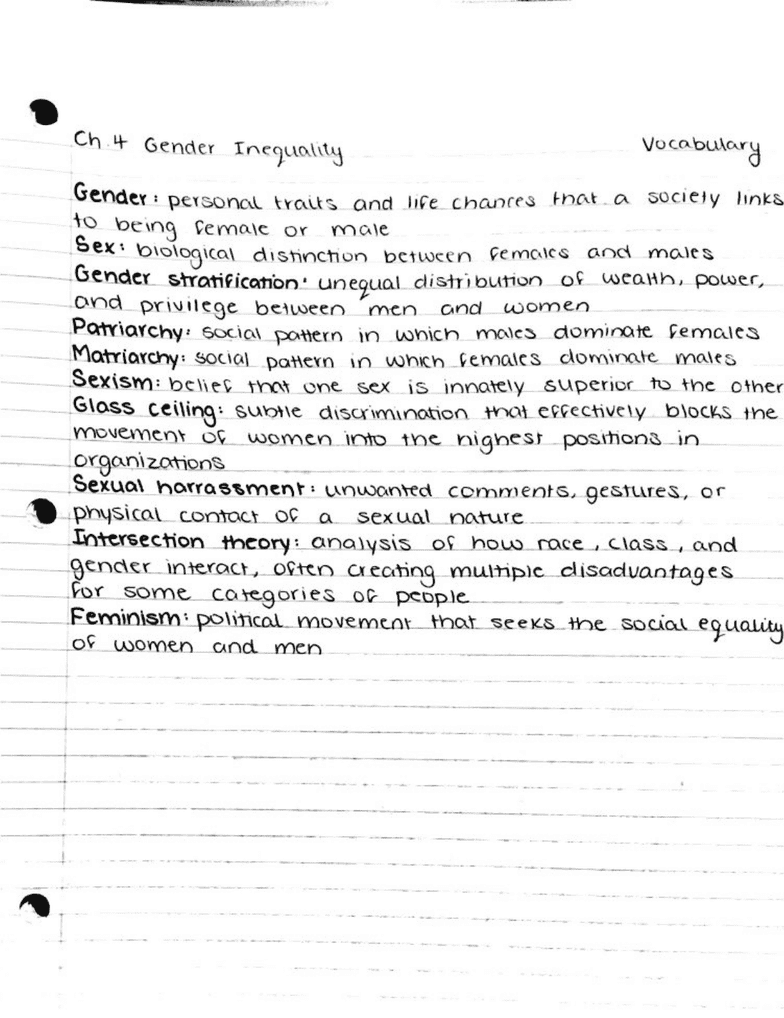 Ch.4 Gender Inequality Vocabulary
Gender: personal traits and life chances that a society links
to being female or male
Sex: biological distinction between females and males
Gender stratification: unequal distribution of wealth, power,
and privilege between men and women
Patriarchy: social pattern in which males dominate females
Matriarchy: social pattern in which females dominate males
Sexism: belief that one sex is innately superior to the other
Glass ceiling: subtle discrimination that effectively blocks the
movement of women into the highest positions in
organizations
Sexual harrassment: unwanted comments, gestures, or
physical contact of a sexual nature
Intersection theory: analysis of how race, class, and
gender interact, often creating multiple disadvantages
for some categories of people
Feminism: political movement that seeks the social equality
of women and men